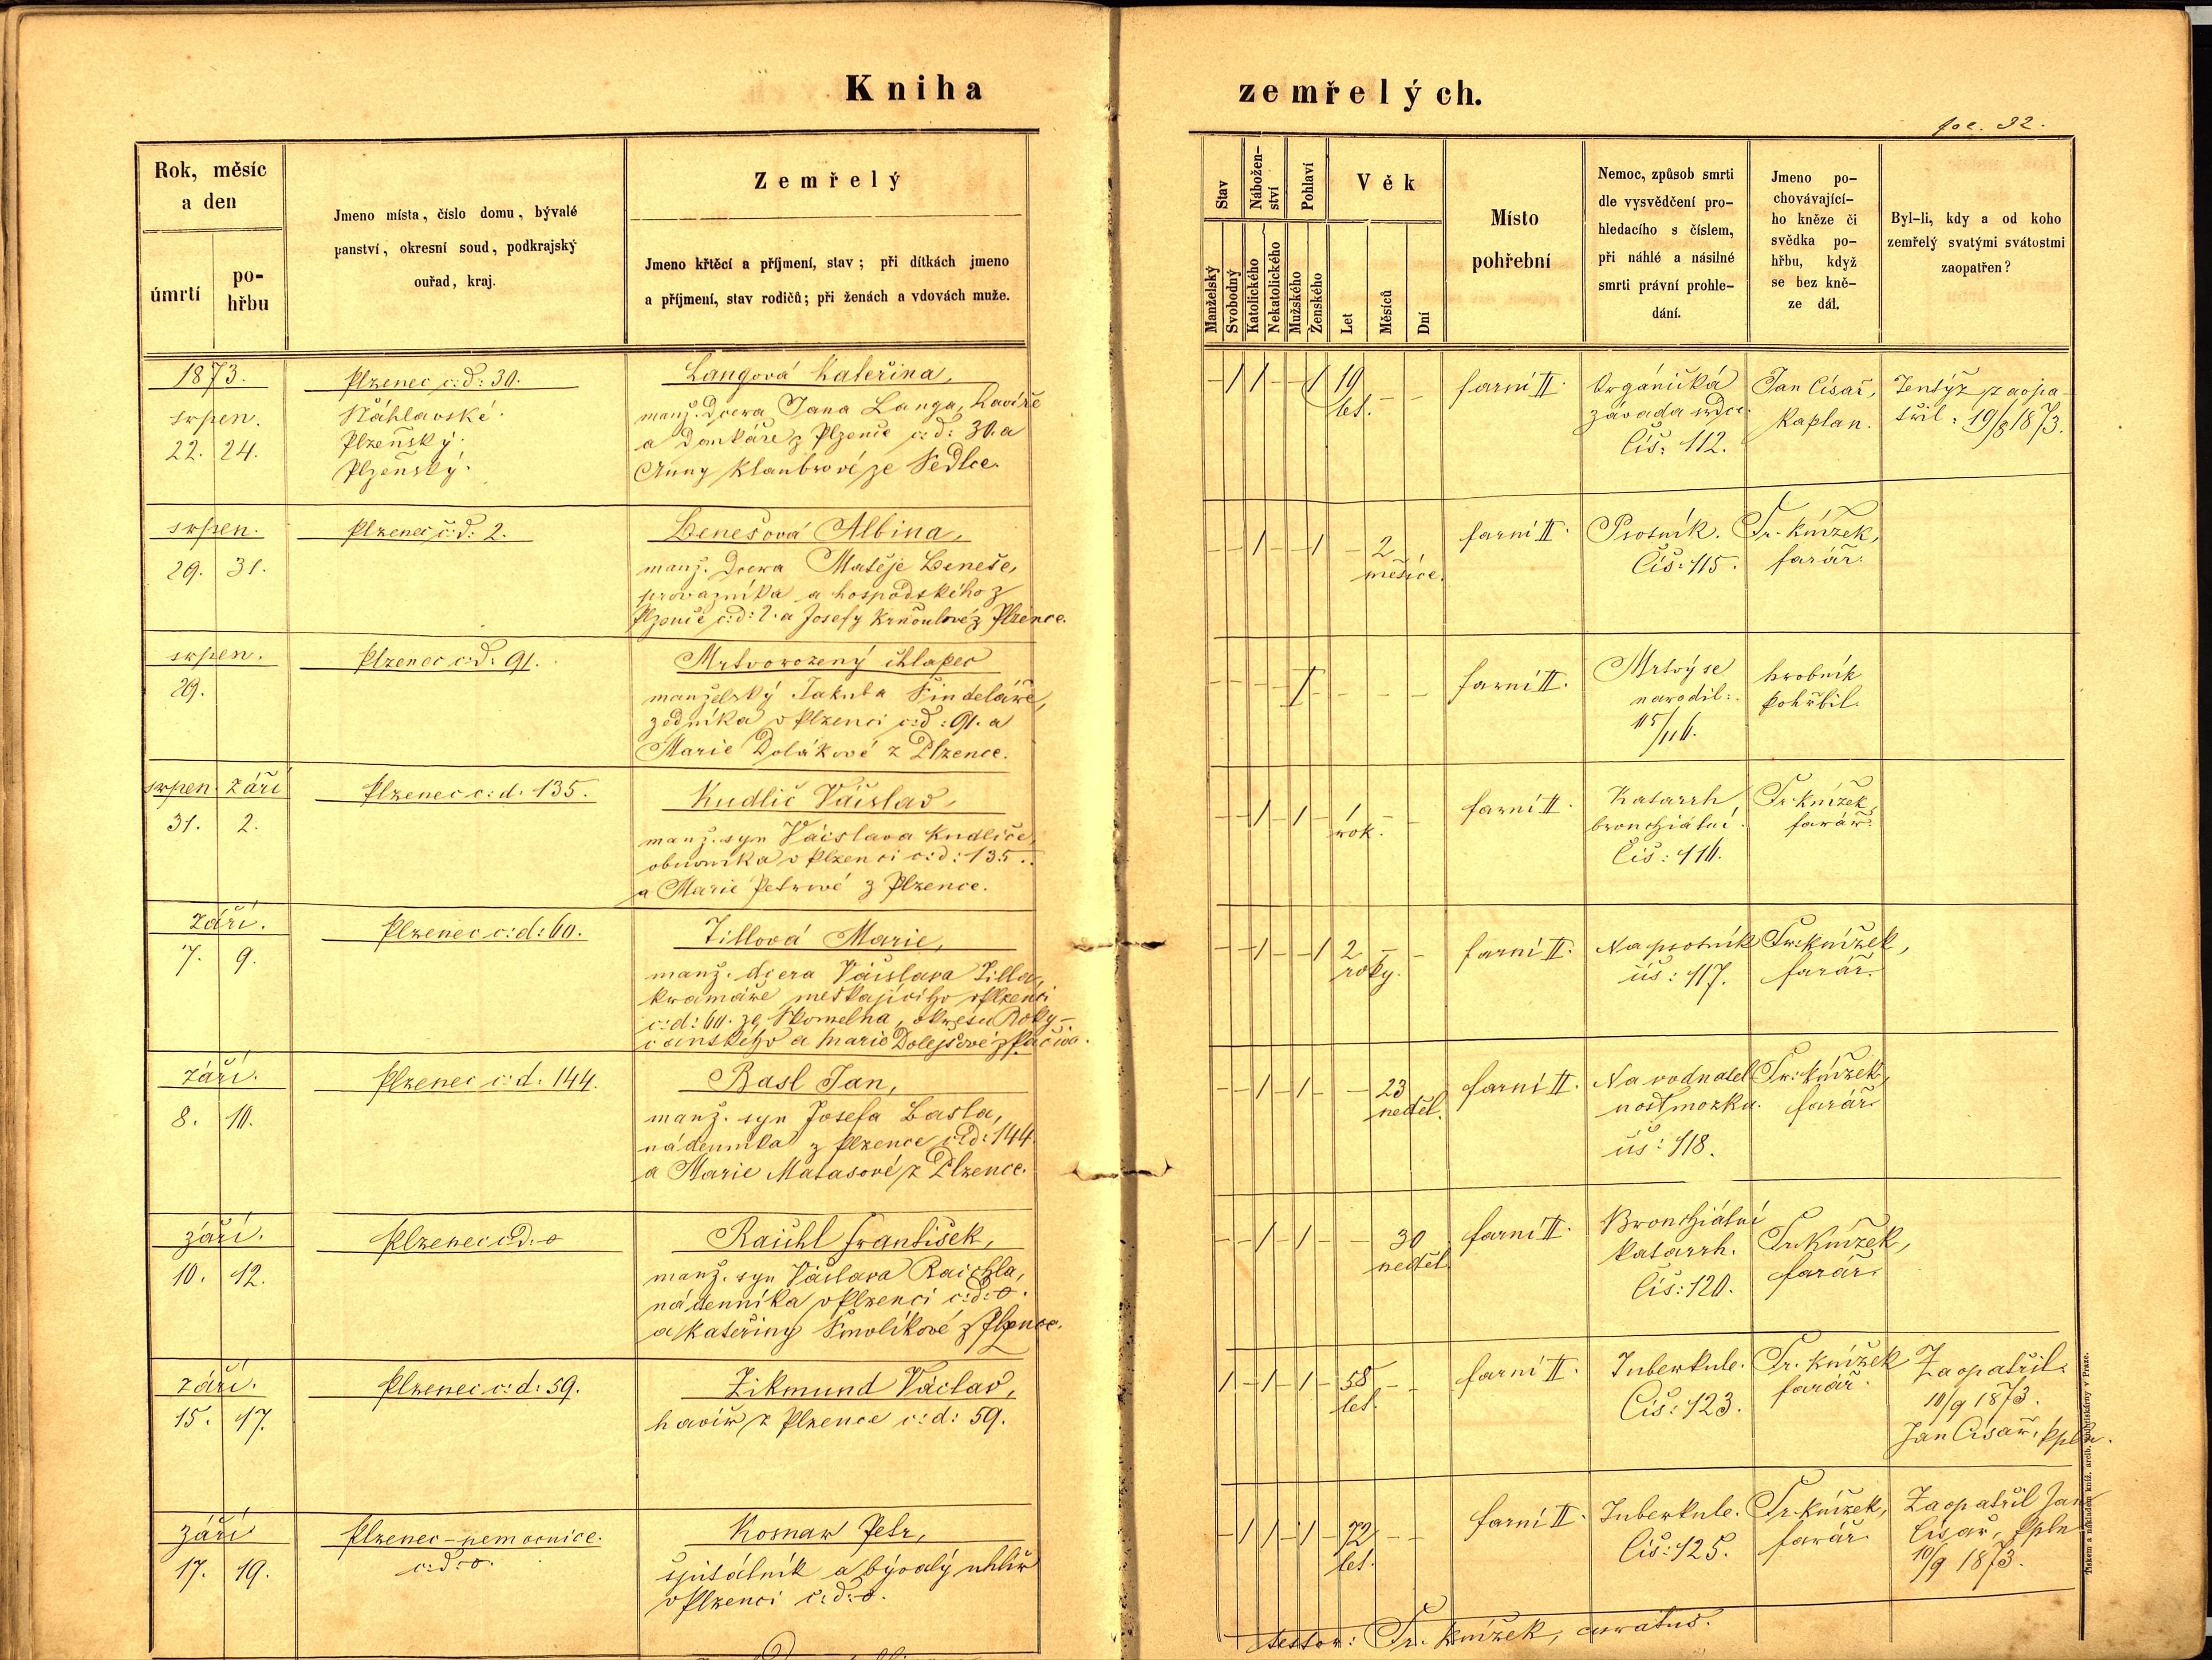 Kniha zemřelých.
fol. 92.
Rok, měsíc
a den
úmrtí
po-
hřbu
Jmeno místa, číslo domu, bývalé
panství, okresní soud, podkrajský
ouřad, kraj.
Zemřelý
Jmeno křtěcí a příjmení, stav; při dítkách jmeno
a příjmení, stav rodičů; při ženách a vdovách muže.
Stav
Manželský
Svobodný
Nábožen-
ství
Katolického
Nekatolického
Pohlaví
Mužského
Ženského
Věk
Let
Měsíců
Dní
Místo
pohřební
Nemoc, způsob smrti
dle vysvědčení pro-
hledacího s číslem,
při náhlé a násilné
smrti právní prohle-
dání.
Jmeno po-
chovávající-
ho kněze či
svědka po-
hřbu, když
se bez kně-
ze dál.
Byl-li, kdy a od koho
zemřelý svatými svátostmi
zaopatřen?
1873.
srpen.
22. 24.
Plzenec c:d: 30.
Náhlavské.
Plzeňský.
Plzeňský.
Langová Kateřina,
manž. dcera Jana Langa, havíře
a domkáře z Plzence c:d: 30. a
Anny Klaubrové ze Sedlce.
19
let.
farní II.
Orgánická
závada srdce.
Čís: 112.
Jan Císař,
Kaplan.
Tentýž zaopa
třil: 19/8 1873.
srpen.
29. 31.
Plzenec č:d: 2.
Benešová Albina,
manž. dcera Matěje Beneše,
provazníka a hospodského z
Plzence c:d: 2. a Josefy Krňoulové z Plzence.
2
měsíce.
farní II.
Psotník.
Čís: 115.
Fr. Knížek,
farář.
srpen.
29.
Plzenec c:d: 91.
Mrtvorozený chlapec
manželský Jakuba Šindeláře,
zedníka v Plzenci c:d: 91. a
Marie Dolákové z Plzence.
farní II.
Mrtvý se
narodil:
115/116.
hrobník
pohřbil.
srpen. září
31. 2.
Plzenec c:d. 135.
Kudlič Václav,
manž. syn Václava Kudliče,
obuvníka v Plzenci c:d: 135.
a Marie Petrové z Plzence.
1
rok.
farní II.
Katarrh
bronchiální.
Čís: 116.
Fr. Knížek,
farář.
září.
7. 9.
Plzenec c:d: 60.
Tillová Marie,
manž. dcera Václava Tilla,
kramáře meškajícího v Plzenci
c:d: 60. ze Skomelna, okresu Roky-
canského a Marie Dolejšové
2
roky.
farní II.
Na psotník
čís: 117.
Fr. Knížek,
farář.
září.
8. 10.
Plzenec c:d. 144.
Basl Jan,
manž. syn Josefa Basla,
nádenníka z Plzence c:d: 144
a Marie Matasové z Plzence.
23
neděl.
farní II.
Na vodnatel
nost mozku.
čís: 118.
Fr. Knížek,
farář.
září.
10. 12.
Plzenec c:d: o
Raichl František,
manž. syn Václava Raichla,
nádenníka v Plzenci c:d: o.
a Kateřiny Smolíkové z Plzence.
30
neděl.
farní II.
Bronchiální
katarrh.
Čís: 120.
Fr. Knížek,
farář.
září.
15. 17.
Plzenec c:d: 59.
Zikmund Václav,
havíř z Plzence c:d: 59.
58
let.
farní II.
Tuberkule.
Čís: 123.
Fr. Knížek
farář.
Zaopatřil:
10/9 1873.
Jan Císař, kpln.
září
17. 19.
Plzenec - nemocnice.
c:d: o.
Kosnar Petr,
špitálník a bývalý uhlíř
v Plzenci c:d: o.
72
let.
farní II.
Tuberkule.
Čís: 125.
Fr. Knížek,
farář.
Zaopatřil Jan
Císař, kpln
10/9 1873.
testor: Fr. Knížek, curatus.
Tiskem a nákladem kníž. arcib. knihtiskárny v Praze.